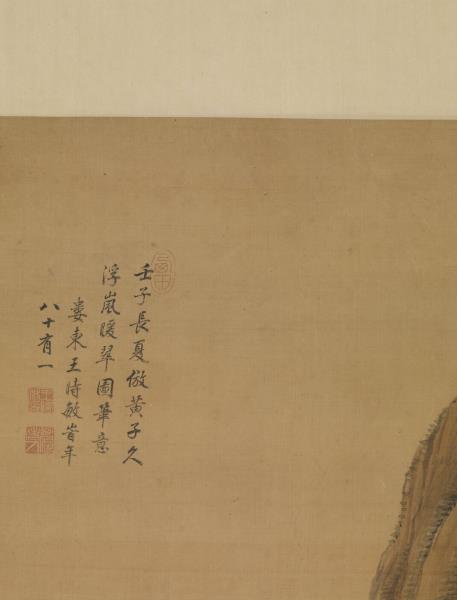 壬子長夏倣黃子久
浮嵐暖翠圖筆意
婁東王時敏旹年
八十有一